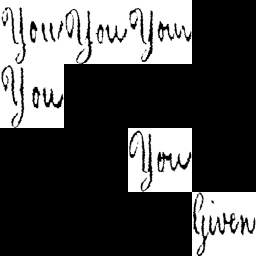 You You You
You
You
Given